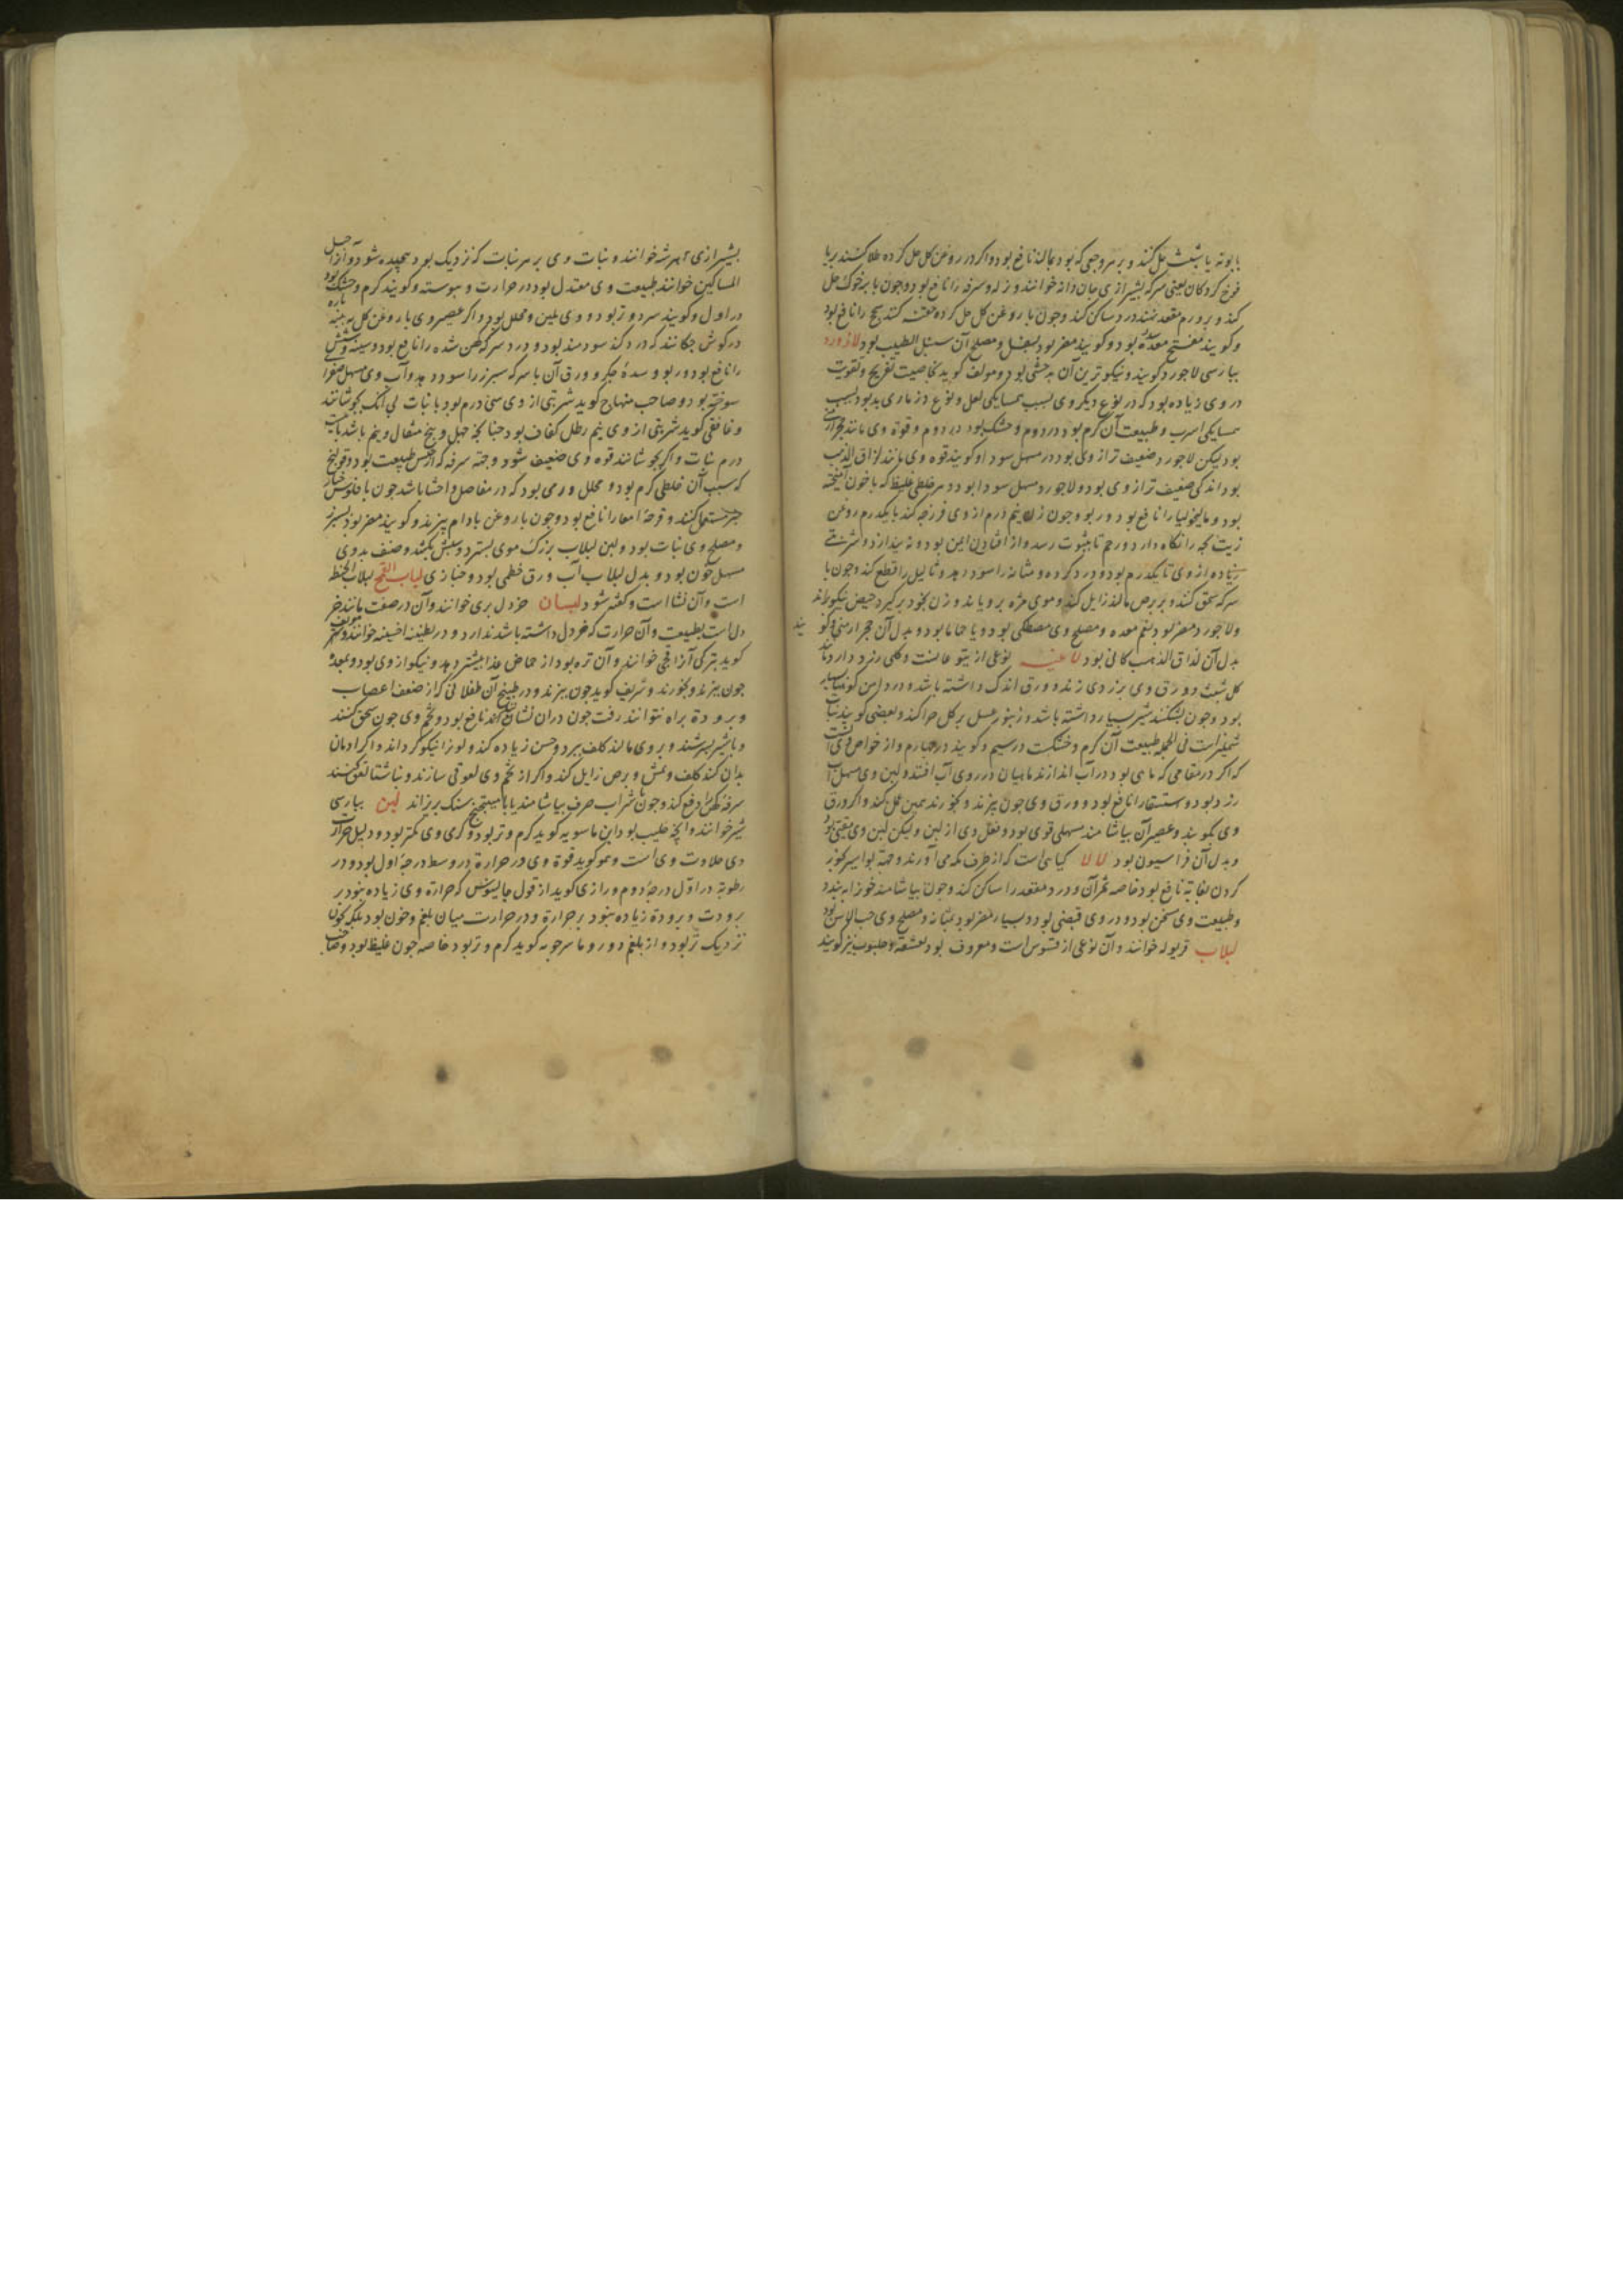 بابونه یا شبث حل کنند و بر هر وجعی که بود بمالند نافع بود و اکر در روغن کل حل کرده طلا کنند بریا
قوخ کردکان یعنی سرکه بشیرازی جان دانه خوانند و زله و سرفه را نافع بود و چون با پیه خوک حل
کند و بر ورم مقعد نهند درد ساکن کند و چون با روغن کل حل کرده حقنه کنند سحج را نافع بود
و کویند مفتح سده بود و کویند مضر بود بسفل و مصلح آن سنبل الطیب بود لازورد
بپارسی لاجورد کویند و نیکوترین آن بدخشی بود و مولف کوید بخاصیت تفریح و تقویت
در وی زیاده بود که در نوع دیکر وی بسبب همسایکی لعل و نوع دزماری بد بود بسبب
همسایکی اسرب و طبیعت آن کرم بود در دوم و خشک بود در دوم و قوة وی مانند حجر ارمنی
بود لیکن لاجورد ضعیف تر از وی بود در مسهل سودا و کویند قوه وی مانند لزاق الذهب
بود اندکی ضعیف تر از وی بود و لاجورد مسهل سودا بود و هر خلطی غلیظ که با خون آمیخته
بود و مالیخولیا را نافع بود و ربو و چون زن نیم درم از وی فرزجه کند با یکدرم روغن
زیت بچه را نکاه دارد و رحم تا بثبوت رسد و از افتادن ایمن بود و نه بیندازد و شربتی
زیاده از وی تا یکدرم بود و درد کرده و مثانه را سود دهد و ثالیل را قطع کند و چون با
سرکه سحق کنند و بر برص مالند زایل کند و موی مژه برویاند و زن بخود برکیرد حیض نیکو براند
و لاجورد مضر بود بفم معده و مصلح وی مصطکی بود و یا حماما بود و بدل آن حجر ارمنی و کویند
بدل آن لزاق الذهب کانی بود لاعیه نوعی از یتوعات است و کلی زرد دارد مانند
کل شبث و ورق وی بزردی زند و ورق اندک داشته باشد و در دامن کوهها بسیار
بود و چون بشکنند شیر بسیار داشته باشد و زنبور عسل بر کل چرا کند و بعضی کویند نبات
است فی الجمله طبیعت آن کرم و خشکست در سیم و کویند در چهارم و از خواص وی آنست
که اکر در مقامی که ماهی بود در آب اندازند ماهیان در روی آب افتند و لبن وی مسهل آب
زرد بود و استسقا را نافع بود و ورق وی چون بپزند و بخورند همین عمل کند و اکر ورق
وی بکوبند و عصیر آن بیاشامند مسهلی قوی بود و فعل وی از لبن و لیکن لبن وی مقیی بود
و بدل آن فراسیون بود لالا کیاهی است که از طرف مکه می آورند و جهة بواسیر بخور
کردن بغایة نافع بود خاصه ثمر آن و درد مقعد را ساکن کند و چون بیاشامند خون را ببندد
و طبیعت وی سخن بود و در وی قبضی بود و بسیار مضر بود بمثانه و مصلح وی حب الآس بود
لبلاب قریوله خوانند و آن نوعی از قسوس است و معروف بود بعشقه و حلبوب نیز کویند
بشیرازی مهرشه خوانند و نبات وی بر هر نبات که نزدیک بود پیچیده شود و آنرا حبل
المساکین خوانند طبیعت وی معتدل بود در حرارت و یبوسته و کویند کرم و خشک بود
در اول و کویند سرد و تر بود و وی ملین و محلل بود و اکر عصیر وی با روغن کل به پنبه پاره
در کوش چکانند که درد کند سودمند بود و درد سر کهن شده را نافع بود و سینه و شش
را نافع بود و ربو و سدهٔ جکر و ورق آن با سرکه سپرز را سود دهد و آب وی مسهل صفرا
سوخته بود و صاحب منهاج کوید شربتی از وی سی درم بود با نبات بی آنک بجوشانند
و غافقی کوید شربتی از وی نیم رطل کفاف بود چنانچه چهل و پنج مثقال و نیم باشد با بیست
درم نبات و اکر بجوشانند قوه وی ضعیف شود و جهة سرفه که از حبس طبیعت بود و قولنج
که سبب آن خلطی کرم بود و محلل ورمی بود که در مفاصل و احشا باشد چون با فلوس خیار
چنبر مستعمل کنند و قرحهٔ امعا را نافع بود و چون با روغن بادام بپزند و کویند مضر بود بسپرز
و مصلح وی نبات بود و لبن لبلاب بزرک موی بسترد و سپش بکشد و صنف بدوی
مسهل خون بود و بدل لبلاب آب ورق خطمی بود و خبازی لباب القمح لباب الحنطه
است و آن نشا است و کفته شود لبسان خردل بری خوانند و آن در صفت مانند خر
دل است بطبیعت و آن حرارت که خردل داشته باشد ندارد و در بطینه اخینه خوانند و مولف
کوید بترکی آنرا قچی خوانند و آن تره بود از حماض غذا بیشتر دهد و نیکو از وی بود و بمعدهٔ
چون بپزند و بخورند و شریف کوید چون بپزند و در طبیخ آن طفلانی که از ضعف اعصاب
و برودة براه نتوانند رفت چون دران نشانند نافع بود و تخم وی چون سحق کنند
و با شیر بسرشند و بر وی مالند کلف ببرد و حسن زیاده کند و لون را نیکو کرداند و اکر ادمان
بدان کند کلف و نمش و برص زایل کند و اکر از تخم وی لعوقی سازند و بناشتا لعق کنند
سرفه کهن را دفع کند و چون با شراب صرف بیاشامند یا با میبختج سنک بریزاند لبن بپارسی
شیر خوانند و آنچه حلیب بود ابن ماسویه کوید کرم و تر بود و کرمی وی کمتر بود و دلیل حرارت
وی حلاوت وی است و هم کوید قوة وی در حرارة در وسط درجهٔ اول بود و در
رطوبة در اول درجهٔ دوم و رازی کوید از قول جالینوس که حرارة وی زیاده نبود بر
برودت و برودة زیاده نبود بر حرارة و در حرارت میان بلغم و خون بود بلکه بخون
نزدیک تر بود و از بلغم دور و ماسرجویه کوید کرم و تر بود خاصه چون غلیظ بود و صاحب